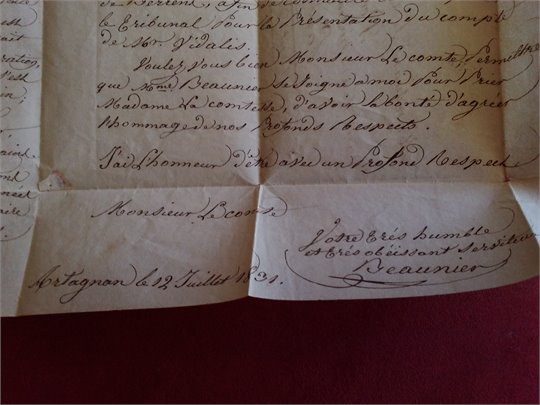 le Tribunal Pour la Présentation du compte
de Mr. Vidalis.
Voulez Vous bien Monsieur Le comte, Permettre
que Mme Beaunier se Joigne a moi Pour Prier
Madame La comtesse, d'avoir la bonté d'agréer
l'hommage de nos Profonds Respects.
J'ai L'honneur d'être avec un Profond Respect
Monsieur Le comte
Votre très humble
et très obéissant serviteur
Beaunier
Artagnan le 12 Juillet 1831.